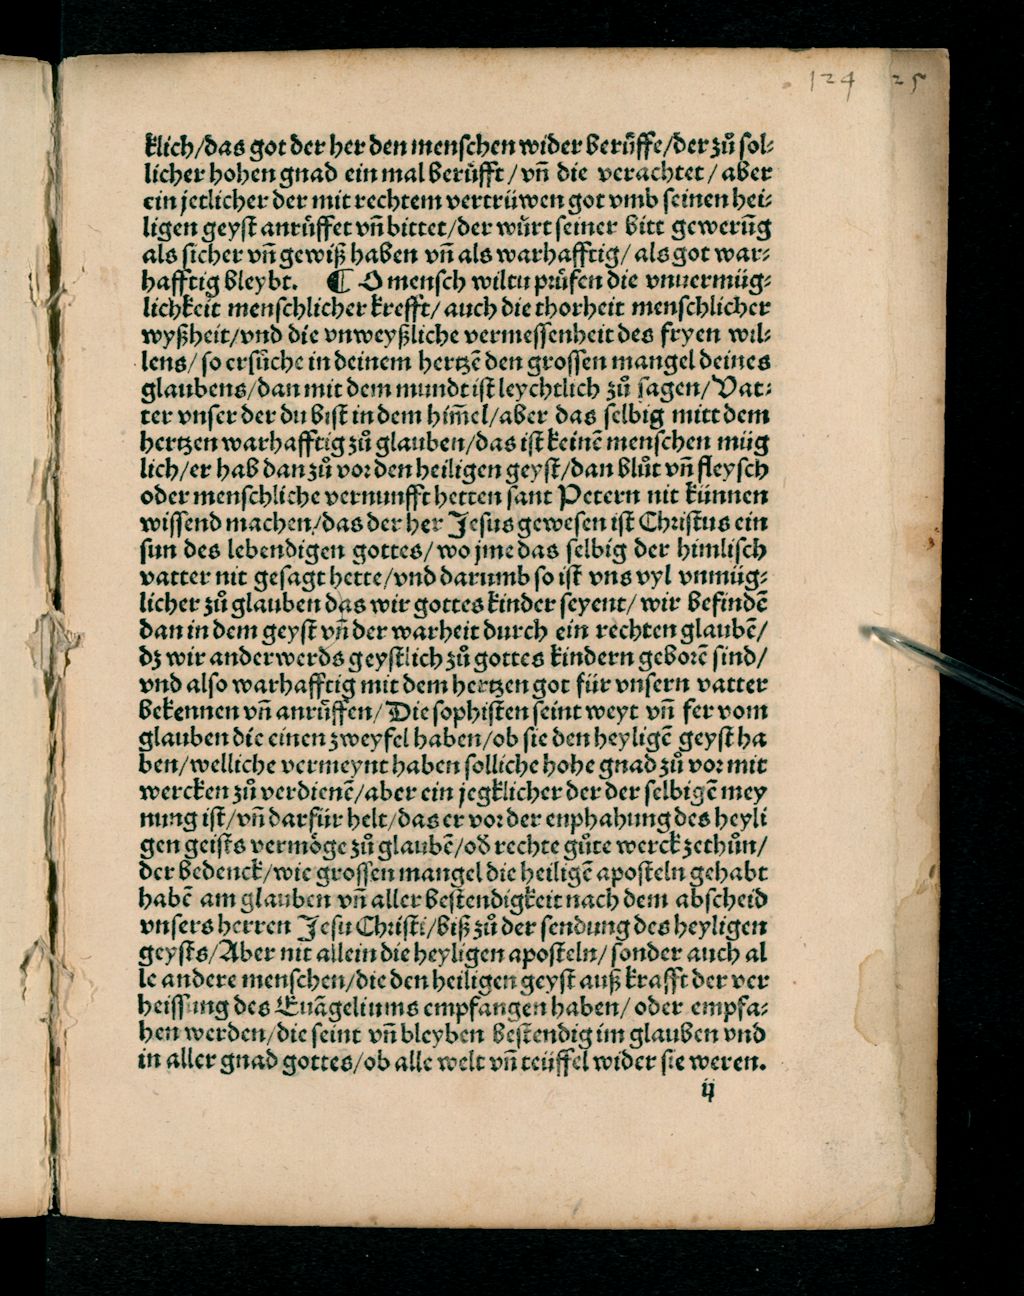 124 25
klich/das got der her den menschen wider berüffe/der zů sol⸗
licher hohen gnad ein mal berüfft/vñ die verachtet/aber
ein jetlicher der mit rechtem vertrüwen got vmb seinen hei⸗
ligen geyst anrüffet vñ bittet/der würt seiner bitt gewerũg
als sicher vñ gewiß haben vñ als warhafftig/als got war⸗
hafftig bleybt. ¶ O mensch wiltu prüfen die vnuermüg⸗
lichkeit menschlicher krefft/auch die thorheit menschlicher
wyßheit/vnd die vnweyßliche vermessenheit des fryen wil⸗
lens/so ersůche in deinem hertzẽ den grossen mangel deines
glaubens/dan mit dem mundt ist leychtlich zů sagen/Vat⸗
ter vnser der du bist in dem him̃el/aber das selbig mitt dem
hertzen warhafftig zů glauben/das ist keinẽ menschen müg
lich/er hab dan zů vor den heiligen geyst/dan blůt vñ fleysch
oder menschliche vernunfft hetten sant Petern nit künnen
wissend machen/das der her Jesus gewesen ist Christus ein
sun des lebendigen gottes/wo jme das selbig der himlisch
vatter nit gesagt hette/vnd darumb so ist vns vyl vnmüg⸗
licher zů glauben das wir gottes kinder seyent/wir befindẽ
dan in dem geyst vñ der warheit durch ein rechten glaubẽ/
dz wir anderwerds geystlich zů gottes kindern geborẽ sind/
vnd also warhafftig mit dem hertzen got für vnsern vatter
bekennen vñ anrüffen/Die sophisten seint weyt vñ fer vom
glauben die einen zweyfel haben/ob sie den heyligẽ geyst ha
ben/welliche vermeynt haben solliche hohe gnad zů vor mit
wercken zů verdienẽ/aber ein jegklicher der der selbigẽ mey
nung ist/vñ darfür helt/das er vor der enphahung des heyli
gen geists vermöge zů glaubẽ/od̕ rechte gůte werck zethůn/
der bedenck/wie grossen mangel die heiligẽ aposteln gehabt
habẽ am glauben vñ aller bestendigkeit nach dem abscheid
vnsers herren Jesu Christi/biß zů der sendung des heyligen
geysts/Aber nit allein die heyligen aposteln/sonder auch al
le andere menschen/die den heiligen geyst auß krafft der ver
heissung des Euãgeliums empfangen haben/oder empfa⸗
hen werden/die seint vñ bleyben bestendig im glauben vnd
in aller gnad gottes/ob alle welt vñ teüffel wider sie weren.
ij